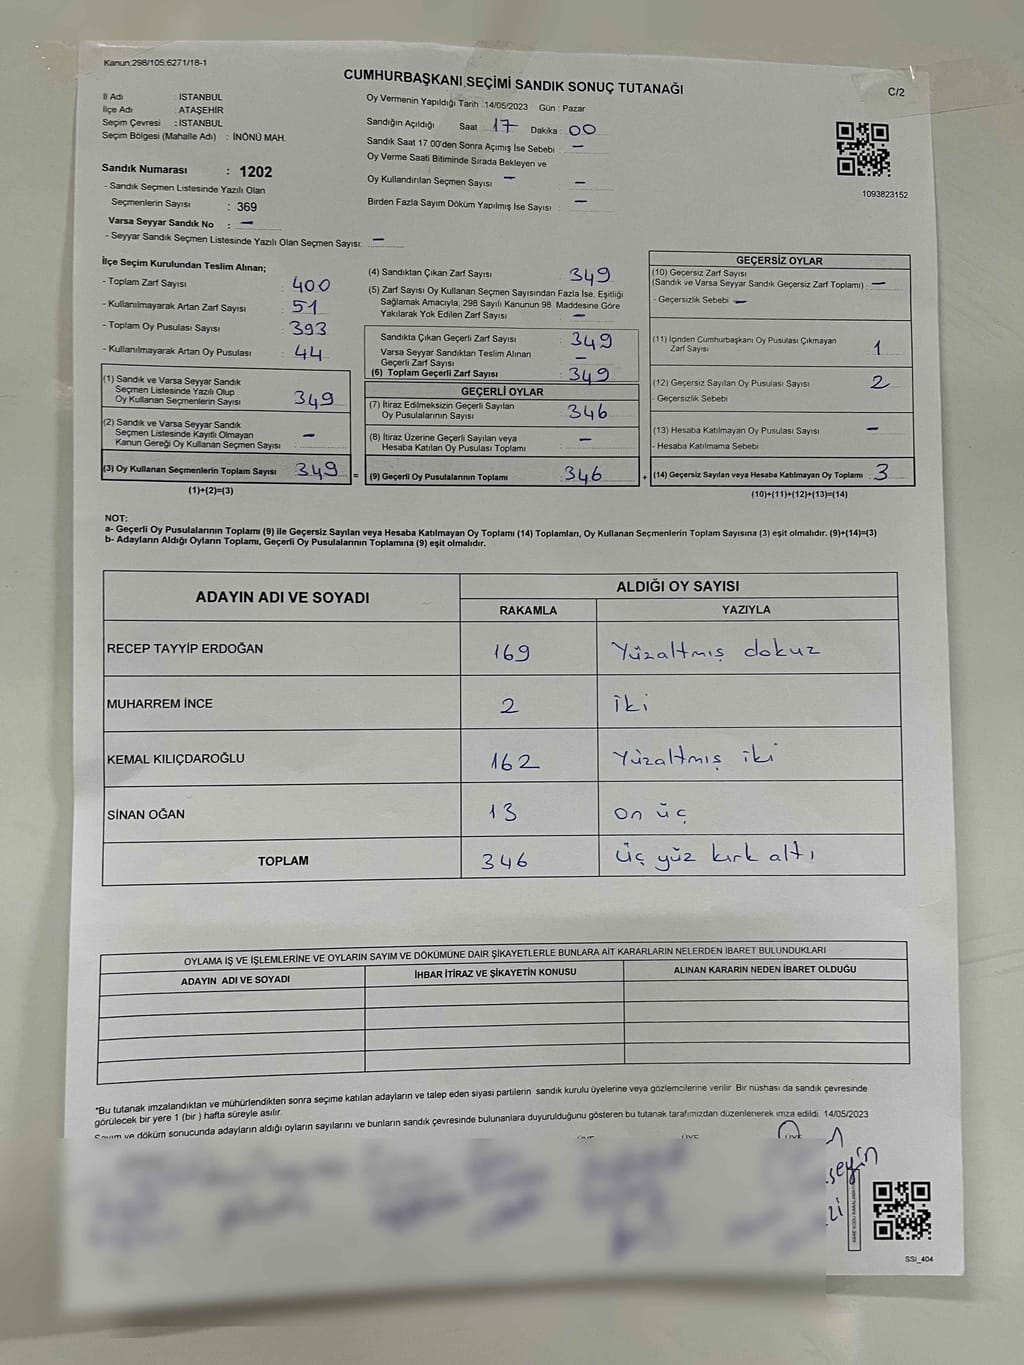 Kanun:298/105;6271/18-1
CUMHURBAŞKANI SEÇİMİ SANDIK SONUÇ TUTANAĞI
C/2
İl Adı : İSTANBUL
İlçe Adı : ATAŞEHİR
Seçim Çevresi : İSTANBUL
Seçim Bölgesi (Mahalle Adı) : İNÖNÜ MAH.
Sandık Numarası : 1202
- Sandık Seçmen Listesinde Yazılı Olan
Seçmenlerin Sayısı : 369
Varsa Seyyar Sandık No : —
- Seyyar Sandık Seçmen Listesinde Yazılı Olan Seçmen Sayısı: —
Oy Vermenin Yapıldığı Tarih :14/05/2023 Gün : Pazar
Sandığın Açıldığı Saat 17 Dakika : 00
Sandık Saat 17.00'den Sonra Açımış İse Sebebi : —
Oy Verme Saati Bitiminde Sırada Bekleyen ve
Oy Kullandırılan Seçmen Sayısı — : —
Birden Fazla Sayım Döküm Yapılmış İse Sayısı : —
1093823152
İlçe Seçim Kurulundan Teslim Alınan;
- Toplam Zarf Sayısı : 400
- Kullanılmayarak Artan Zarf Sayısı : 51
- Toplam Oy Pusulası Sayısı : 393
- Kullanılmayarak Artan Oy Pusulası : 44
(1) Sandık ve Varsa Seyyar Sandık
Seçmen Listesinde Yazılı Olup
Oy Kullanan Seçmenlerin Sayısı : 349
(2) Sandık ve Varsa Seyyar Sandık
Seçmen Listesinde Kayıtlı Olmayan
Kanun Gereği Oy Kullanan Seçmen Sayısı : —
(3) Oy Kullanan Seçmenlerin Toplam Sayısı 349 =
(1)+(2)=(3)
(4) Sandıktan Çıkan Zarf Sayısı : 349
(5) Zarf Sayısı Oy Kullanan Seçmen Sayısından Fazla İse, Eşitliği
Sağlamak Amacıyla, 298 Sayılı Kanunun 98. Maddesine Göre
Yakılarak Yok Edilen Zarf Sayısı : —
Sandıkta Çıkan Geçerli Zarf Sayısı : 349
Varsa Seyyar Sandıktan Teslim Alınan
Geçerli Zarf Sayısı : —
(6) Toplam Geçerli Zarf Sayısı : 349
GEÇERLİ OYLAR
(7) İtiraz Edilmeksizin Geçerli Sayılan
Oy Pusulalarının Sayısı : 346
(8) İtiraz Üzerine Geçerli Sayılan veya
Hesaba Katılan Oy Pusulası Toplamı : —
(9) Geçerli Oy Pusulalarının Toplamı : 346 +
GEÇERSİZ OYLAR
(10) Geçersiz Zarf Sayısı
(Sandık ve Varsa Seyyar Sandık Geçersiz Zarf Toplamı) : —
- Geçersizlik Sebebi : —
(11) İçinden Cumhurbaşkanı Oy Pusulası Çıkmayan
Zarf Sayısı : 1
(12) Geçersiz Sayılan Oy Pusulası Sayısı : 2
- Geçersizlik Sebebi :
(13) Hesaba Katılmayan Oy Pusulası Sayısı : —
- Hesaba Katılmama Sebebi :
(14) Geçersiz Sayılan veya Hesaba Katılmayan Oy Toplamı : 3
(10)+(11)+(12)+(13)=(14)
NOT:
a- Geçerli Oy Pusulalarının Toplamı (9) ile Geçersiz Sayılan veya Hesaba Katılmayan Oy Toplamı (14) Toplamları, Oy Kullanan Seçmenlerin Toplam Sayısına (3) eşit olmalıdır. (9)+(14)=(3)
b- Adayların Aldığı Oyların Toplamı, Geçerli Oy Pusulalarının Toplamına (9) eşit olmalıdır.
ADAYIN ADI VE SOYADI ALDIĞI OY SAYISI
RAKAMLA YAZIYLA
RECEP TAYYİP ERDOĞAN 169 Yüzaltmış dokuz
MUHARREM İNCE 2 İki
KEMAL KILIÇDAROĞLU 162 Yüzaltmış iki
SİNAN OĞAN 13 On üç
TOPLAM 346 üç yüz kırk altı
OYLAMA İŞ VE İŞLEMLERİNE VE OYLARIN SAYIM VE DÖKÜMÜNE DAİR ŞİKAYETLERLE BUNLARA AİT KARARLARIN NELERDEN İBARET BULUNDUKLARI
ADAYIN ADI VE SOYADI İHBAR İTİRAZ VE ŞİKAYETİN KONUSU ALINAN KARARIN NEDEN İBARET OLDUĞU
"Bu tutanak imzalandıktan ve mühürlendikten sonra seçime katılan adayların ve talep eden siyasi partilerin sandık kurulu üyelerine veya gözlemcilerine verilir. Bir nüshası da sandık çevresinde
görülecek bir yere 1 (bir ) hafta süreyle asılır.
Sayım ve döküm sonucunda adayların aldığı oyların sayılarını ve bunların sandık çevresinde bulunanlara duyurulduğunu gösteren bu tutanak tarafımızdan düzenlenerek imza edildi. 14/05/2023
ÜYE ÜYE ÜYE
SSI_404